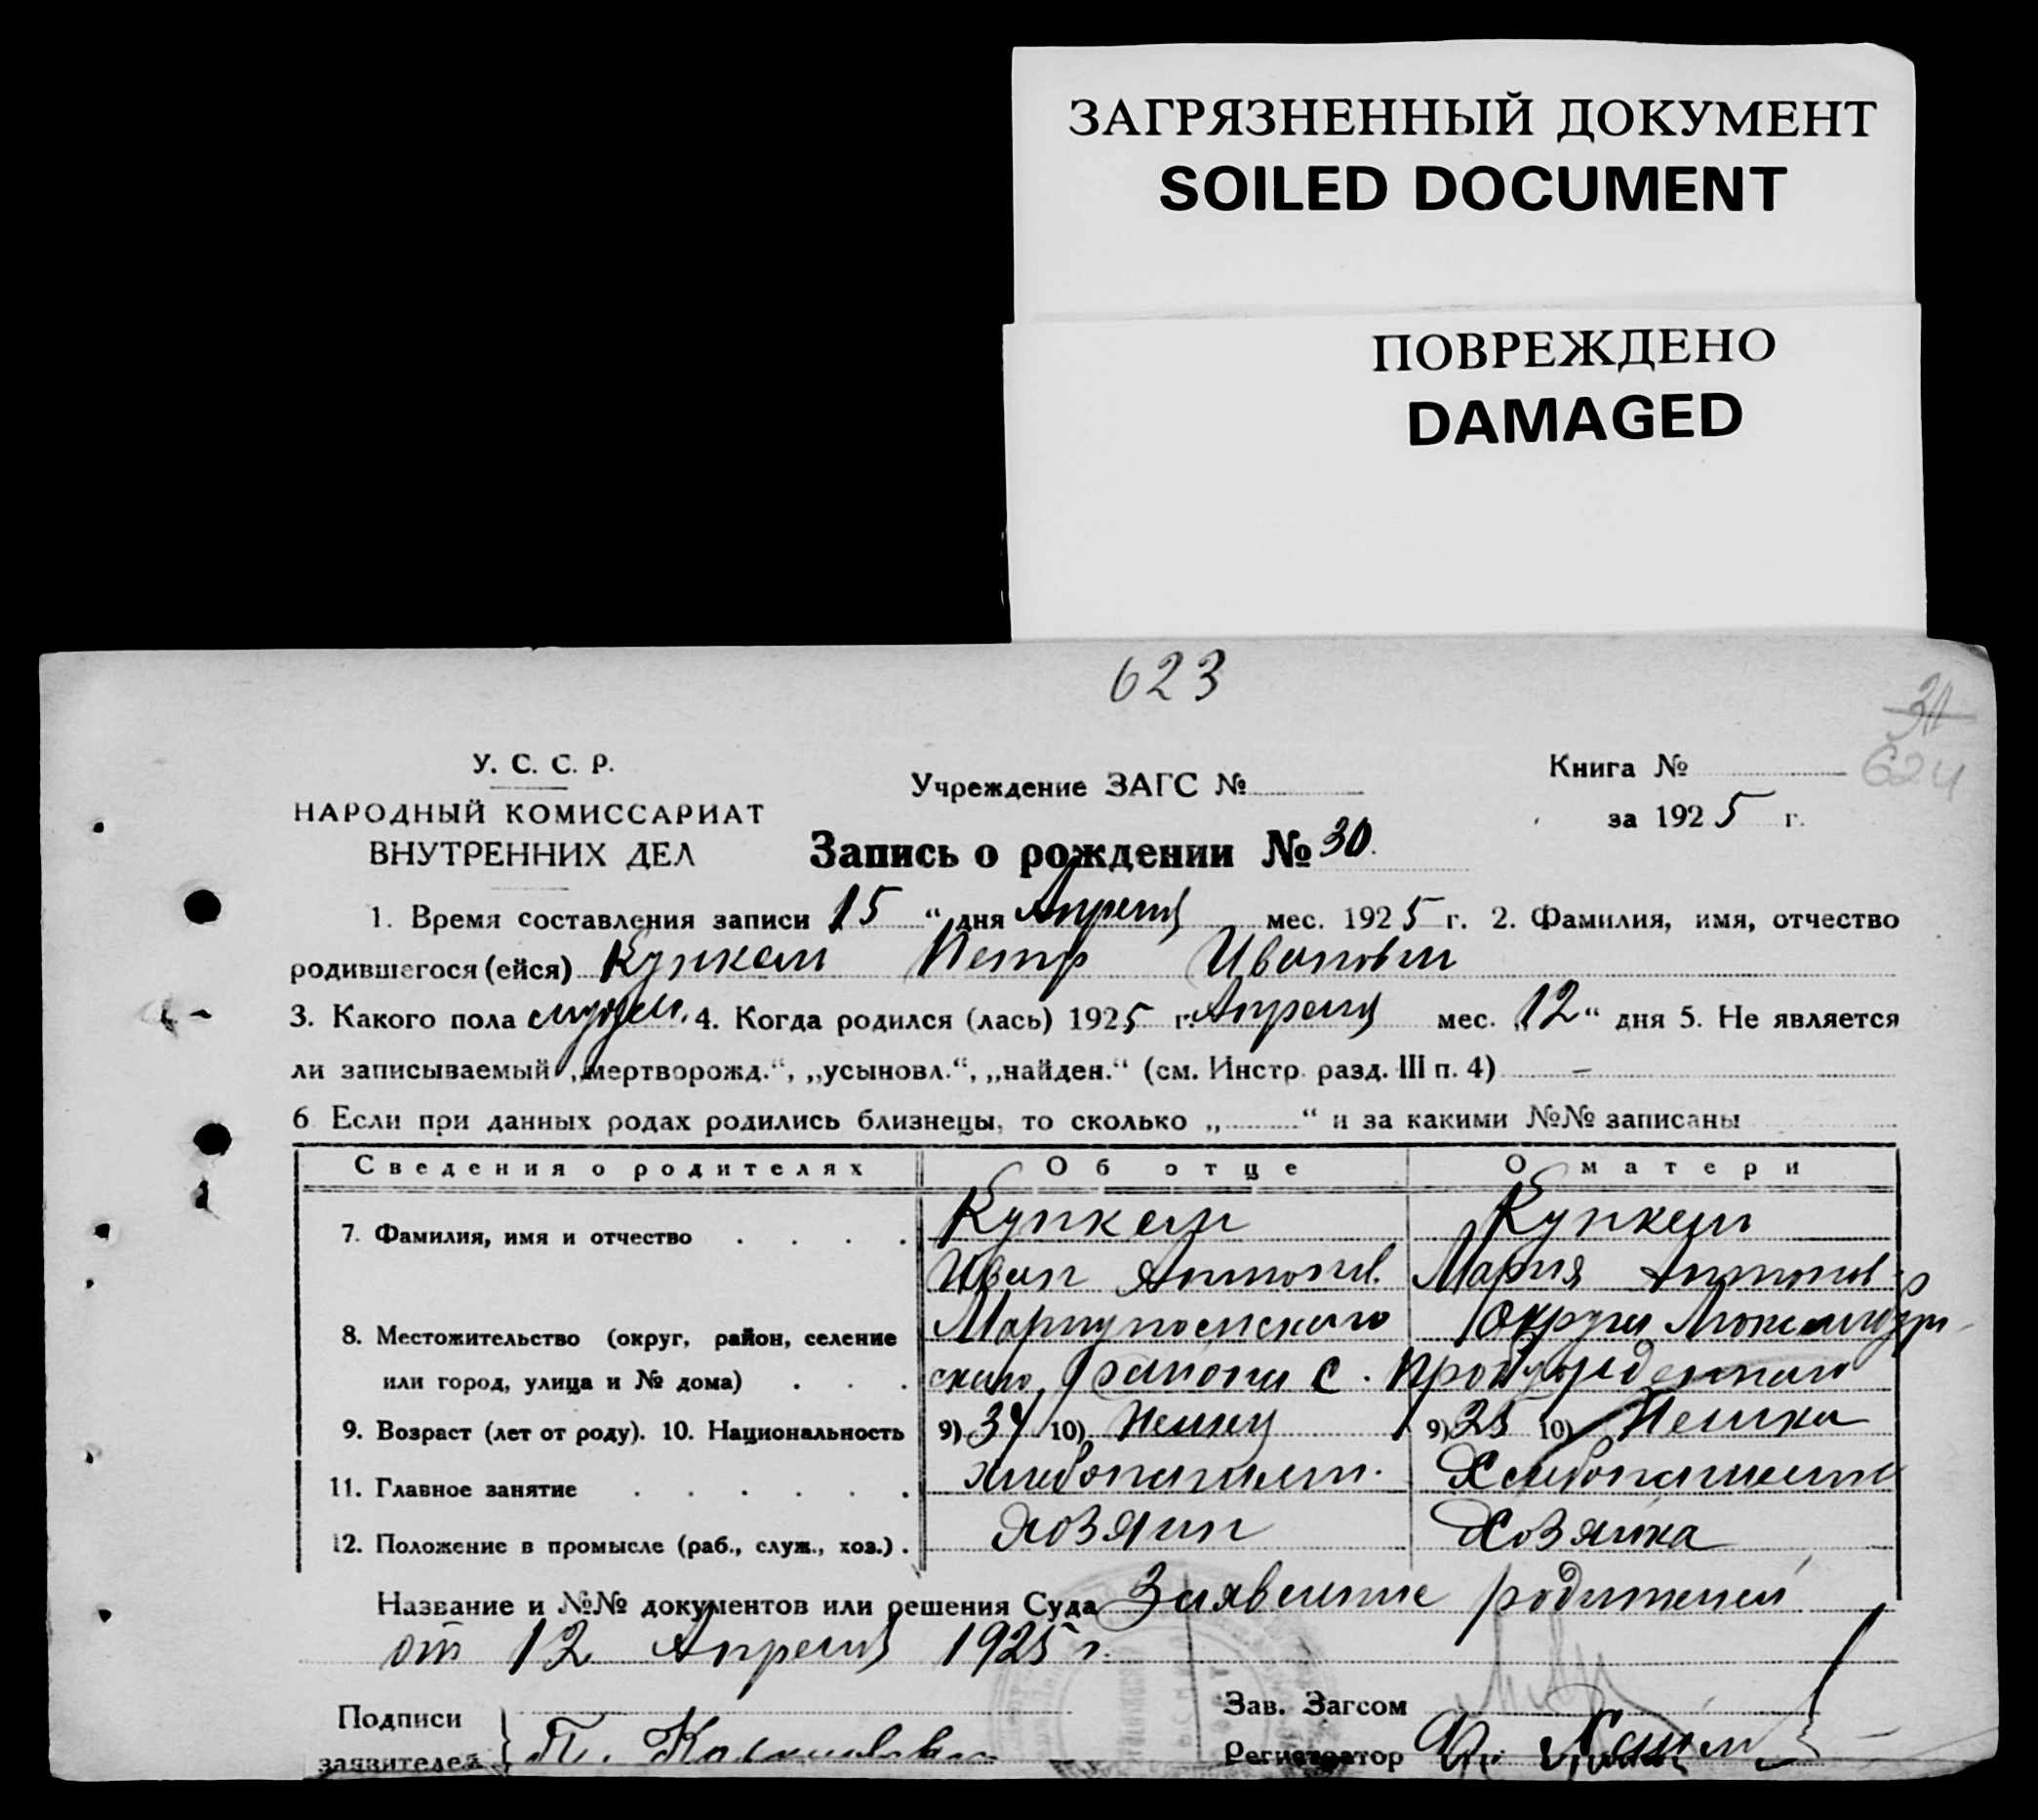 ЗАГРЯЗНЕННЫЙ ДОКУМЕНТ
SOILED DOCUMENT
ПОВРЕЖДЕНО
DAMAGED
623
31
624
У. С. С. Р.
НАРОДНЫЙ КОМИССАРИАТ
ВНУТРЕННИХ ДЕЛ
Учреждение ЗАГС №
Книга №
за 1925 г.
Запись о рождении № 30.
1. Время составления записи 15 " дня Апреля мес. 1925 г. 2. Фамилия, имя, отчество
родившегося (ейся) Кункель Петр Иванович
3. Какого пола мужск. 4. Когда родился (лась) 1925 г. Апреля мес. „12" дня 5. Не является
ли записываемый „мертворожд.", „усыновл.", „найден." (см. Инстр. разд. III п. 4) –
6 Если при данных родах родились близнецы, то сколько „ " и за какими №№ записаны
Сведения о родителях Об отце О матери
7. Фамилия, имя и отчество Кункель Кункель
Иван Антонов. Мария Антонов
8. Местожительство (округ, район, селение Мариупольского округа Люксембург-
или город, улица и № дома) ского района с.
9. Возраст (лет от роду). 10. Национальность 9) 34 10) Немец 9) 25 10) Немка
11. Главное занятие хлебопашест. Хлебопашест
12. Положение в промысле (раб., служ., хоз.) . хозяин Хозяйка
Название и №№ документов или решения Суда Заявление родителей
от 12 Апреля 1925 г.
Подписи
заявителей
Зав. Загсом
Регистратор